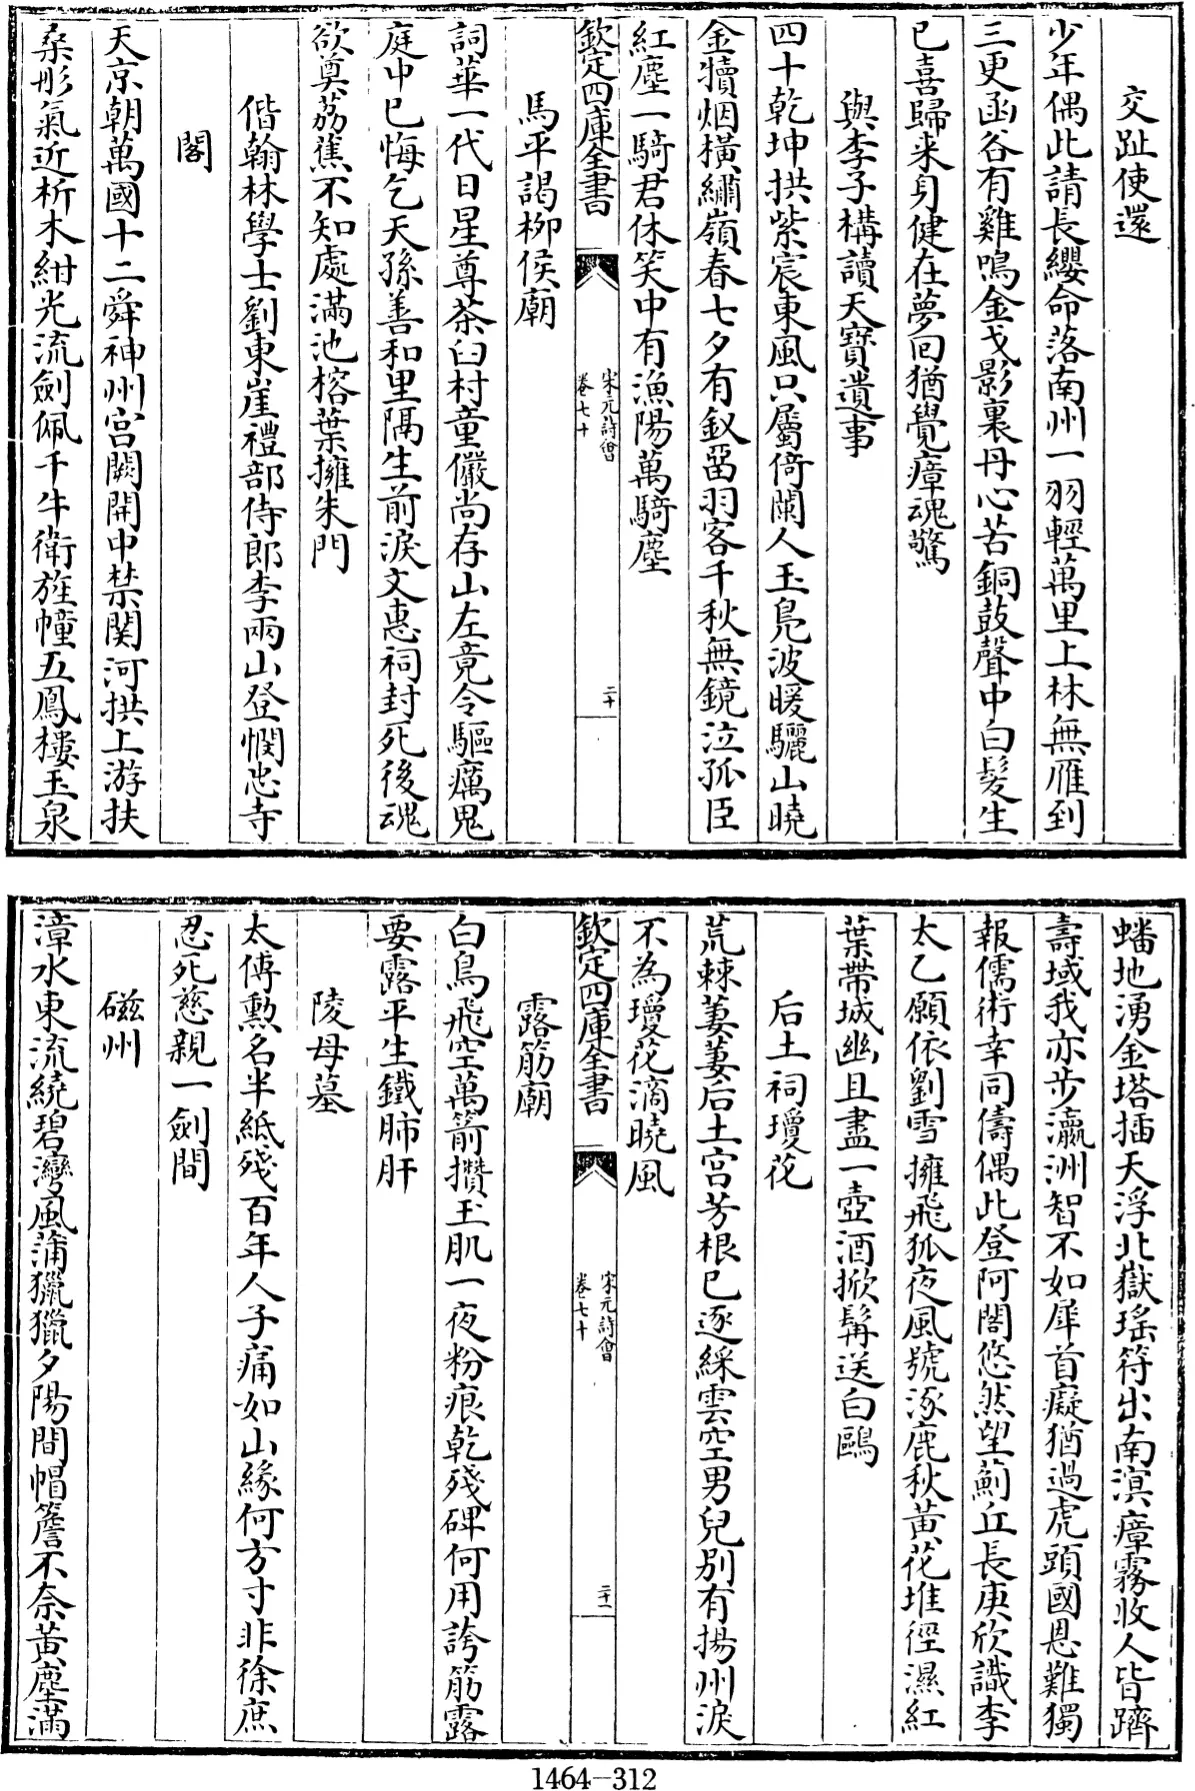 交趾使還
少年偶此請長纓命落南州一羽輕萬里上林無雁到
三更函谷有雞鳴金戈影裏丹心苦銅鼓聲中白髮生
已喜歸来身健在夢回猶覺瘴魂驚
與李子構讀天寶遺事
四十乾坤拱紫宸東風只屬倚闌人玉鳬波暖驪山曉
金犢烟橫繡嶺春七夕有釵留羽客千秋無鏡泣孤臣
紅塵一騎君休笑中有漁陽萬騎塵
欽定四庫全書
宋元詩會
卷七十
二十
馬平謁柳侯廟
詞華一代日星尊荼臼村童儼尚存山左竟令驅癘鬼
庭中已悔乞天孫善和里隔生前淚文惠祠封死後魂
欲奠荔蕉不知處滿池榕葉擁朱門
偕翰林學士劉東崖禮部侍郎李兩山登憫忠寺
閣
天京朝萬國十二舜神州宫闕開中禁関河拱上游扶
桑形氣近析木紺光流劍佩千牛衛旌幢五鳳樓玉泉
蟠地湧金塔插天浮北嶽瑶符出南溟瘴霧收人皆躋
壽域我亦步瀛洲智不如犀首癡猶過虎頭國恩難獨
報儒術幸同儔偶此登阿閣悠然望薊丘長庚欣識李
太乙願依劉雪擁飛狐夜風號涿鹿秋黄花堆徑濕紅
葉帶城幽且盡一壺酒掀髯送白鷗
后土祠瓊花
荒棘萋萋后土宫芳根已逐綵雲空男兒别有揚州淚
不為瓊花滴曉風
欽定四庫全書
宋元詩會
卷七十
二十一
露筋廟
白鳥飛空萬箭攢玉肌一夜粉痕乾殘碑何用誇筋露
要露平生鐵肺肝
陵母墓
太傅勲名半紙殘百年人子痛如山緣何方寸非徐庶
忍死慈親一劍間
磁州
漳水東流繞碧灣風蒲獵獵夕陽間帽簷不奈黄塵滿
1464-312